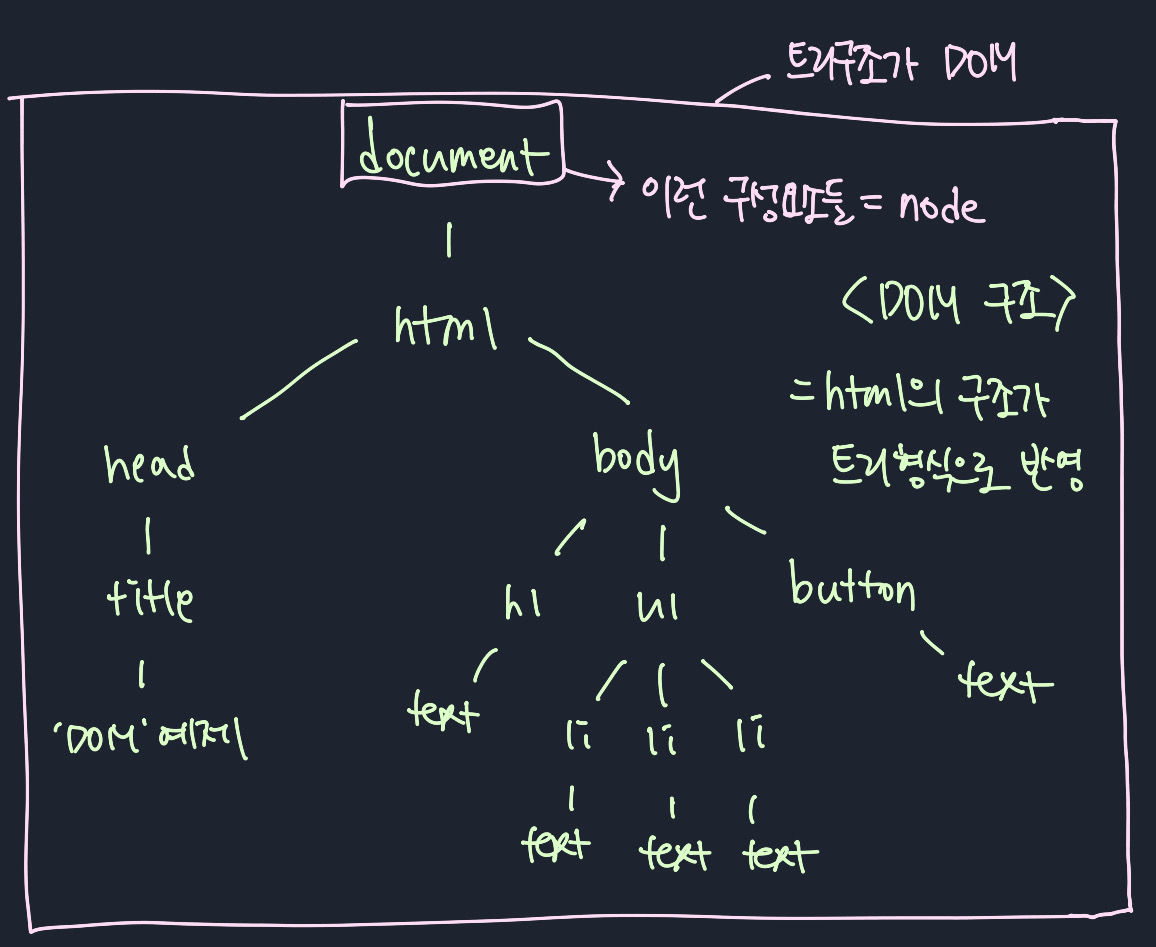 트리구조가 DOM
document
이런 구성요소들 = node
html
<DOM 구조>
= html의 구조가
트리형식으로 반영
head
body
title
h1
ul
button
'DOM' 예제
text
li
li
li
text
text
text
text